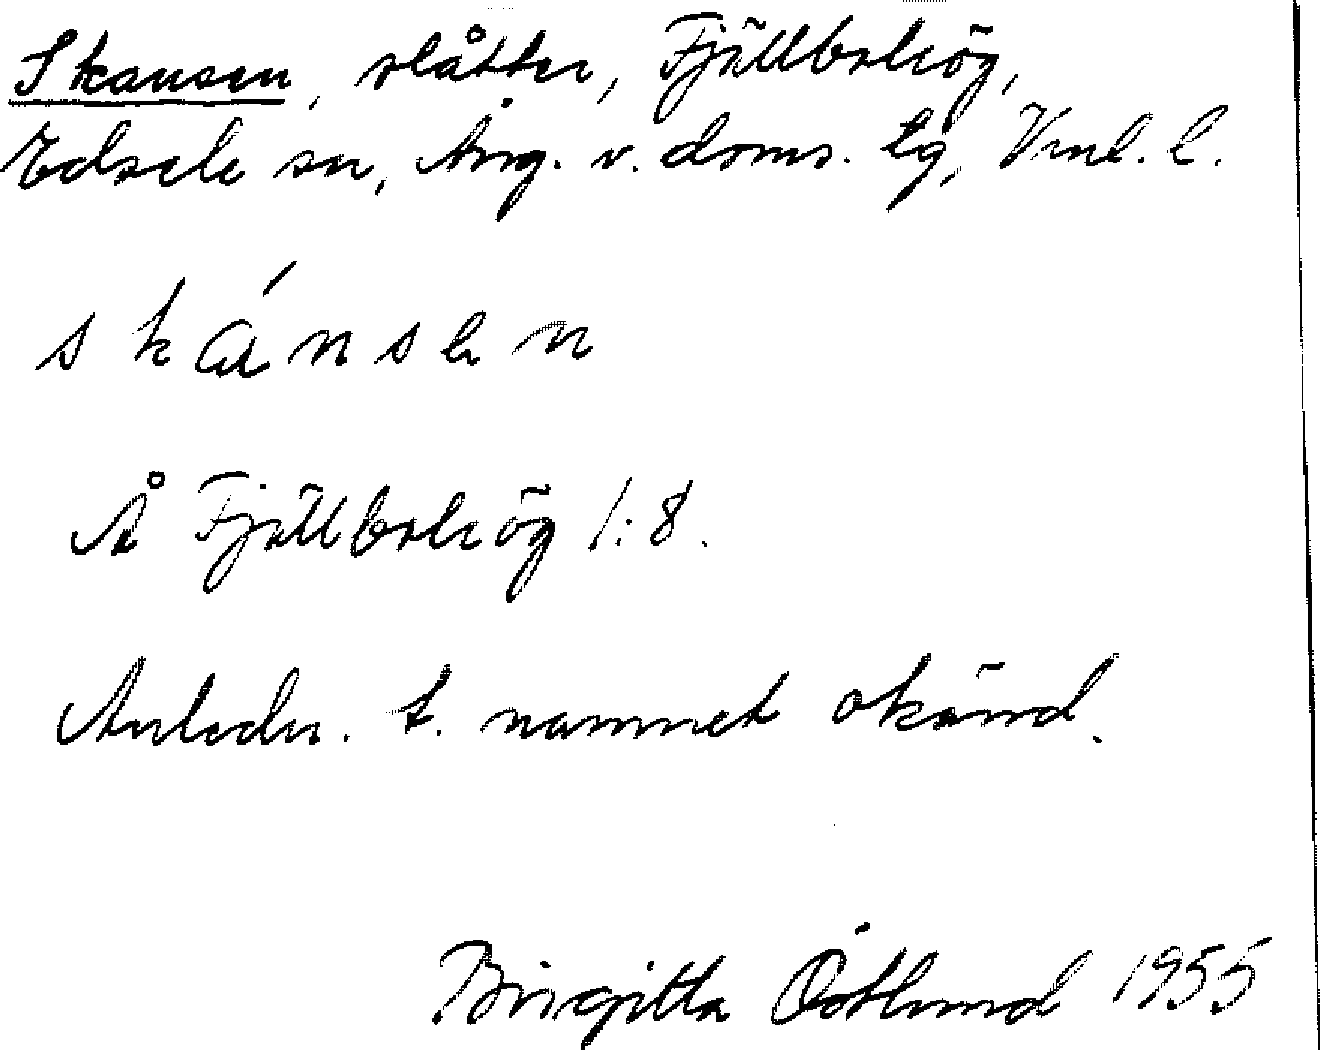 Skansen, slåtter, Fjällbohög,
Edsele sn, Ång. v. doms. tg, Vnl. l.
skánsen
Å Fjällbohög 1:8.
Anledn. t. namnet okänd.
Birgitta Östlund 1955